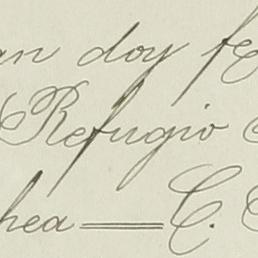 an doy fe
Refugio
hea = C.